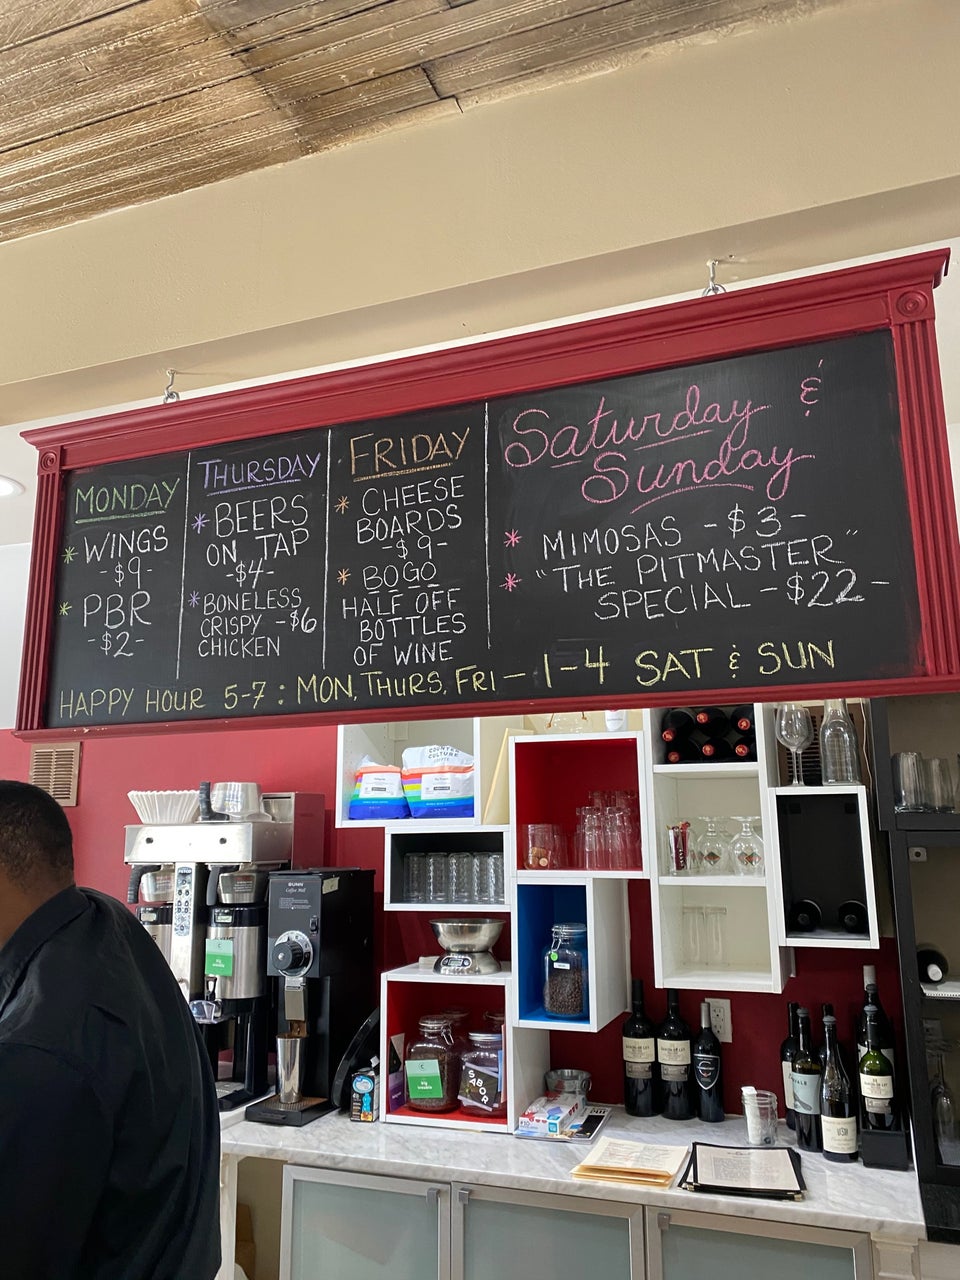 MONDAY
* WINGS
-$9-
* PBR
-$2-
THURSDAY
* BEERS
ON TAP
-$4-
* BONELESS
CRISPY -$6
CHICKEN
FRIDAY
* CHEESE
BOARDS
-$9-
* BOGO
HALF OFF
BOTTLES
OF WINE
Saturday &
Sunday
* MIMOSAS -$3-
* "THE PITMASTER"
SPECIAL -$22-
HAPPY HOUR 5-7: MON, THURS, FRI - 1-4 SAT & SUN
COUNTER
CULTURE
COFFEE
BUNN
Coffee Mill
big
trouble
SABOR